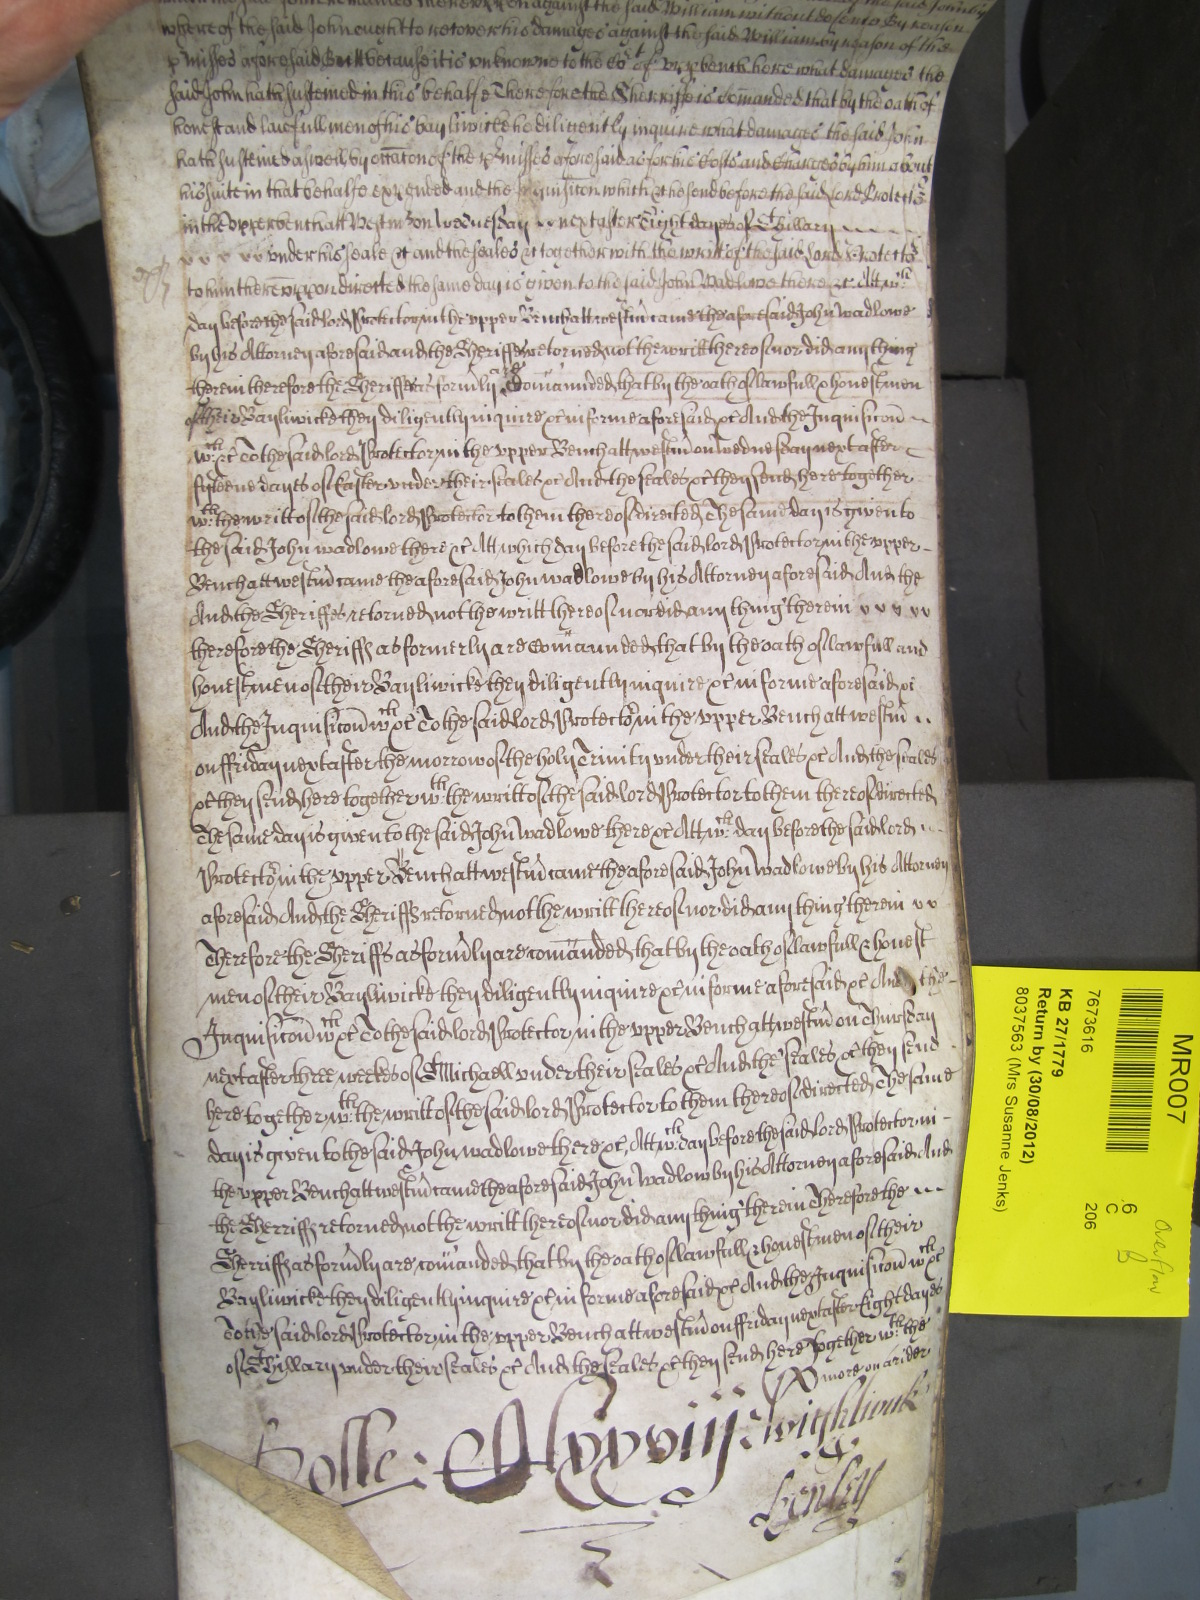 against the said William without
where of the said John ought to recover his damages against the said William by reason of the
p misses aforesaid But because it is unknowne to the Cort of upper bench here what damages the
said John hath susteined in this behalfe Therefore the Sherriffe is comanded that by the oath of
honest and lawfull men of his bayliwicke he diligently inquire what damages the said John
hath susteined aswell by occacon of the pmisses aforesaid as for his Costs and Charges by him about
his suite in that behalfe expended and the inquisicon which &c he send before the said Lord Protector
in the upper bench att Westm on Wednesday next after Eight dayes of Hillary
under his seale &c and the seales &c together with the writt of the said Lord Protector
to him thereuppon directed the same day is given to the said John Wadlowe there &c Att wch
day before the said lord Protector in the upper Bench att westm came the aforesaid John wadlowe
by his Attorney aforesaid and the Sheriffes retorned not the writt thereof nor did any thing
therein therefore the Sheriffes as formly are Comanded that by the oath of lawfull & honest men
of their Bayliwicke they diligently inquire &c in forme aforesaid &c And the Inquisicon
wch &c To the said lord Protector in the upper Bench att westm on wednesday next after
fifteene dayes of Easter under their seales &c And the seales &c they send here together
wth the writt of the said lord Protector to them thereof directed The same day is given to
the said John wadlowe there &c Att which day before the said lord Protector in the upper
Bench att westm came the aforesaid John wadlowe by his Attorney aforesaid And the
And the Sheriffes retorned not the writt thereof nor did any thing therein
therefore the Sheriffs as formerly are Comaunded that by the oath of lawfull and
honest men of their Bayliwicke they diligently inquire &c in forme aforesaid &c
And the Inquisicon wch &c To the said lord Protector in the upper Bench att westm
on ffriday next after the morrow of the holy Trinity under their seales &c And the seales
&c they send here together wth the writt of the said lord Protector to them thereof directed
The same day is given to the said John wadlowe there &c Att wch day before the said lord
Protector in the upper Bench att westm came the aforesaid John wadlowe by his Attorney
aforesaid And the Sheriffs retorned not the writt thereof nor did any thing therein
Therefore the Sheriffs as formly are comanded that by the oath of lawfull & honest
men of their Bayliwicke they diligently inquire &c in forme aforesaid &c And the
Inquisicon wch &c To the said lord Protector in the upper Bench att westm on Thursday
next after three weekes of St Michaell under their seales &c And the seales &c they send
here together wth the writt of the said lord Protector to them thereof directed The same
day is given to the said John wadlowe there &c Att wch day before the said lord Protector in
the upper Bench att westm came the aforesaid John Wadlow by his Attorney aforesaid And
the Sherriffs retorned not the writt thereof nor did any thing therein Therefore the
Sherriffs as formly are comanded that by the oath of lawfull & honest men of their
Bayliwicke they diligently inquire &c in forme aforesaid &c And the Inquisicon wch &c
To the said lord Protector in the upper Bench att westm on ffriday next after Eight dayes
of St Hillary under their seales &c And the seales &c they send here together wth the
more on a rider
Rolle
wightwick
MR007
7673616
6
C
206
Overflow
KB 27/1779
Return by (30/08/2012)
8037563 (Mrs Susanne Jenks)